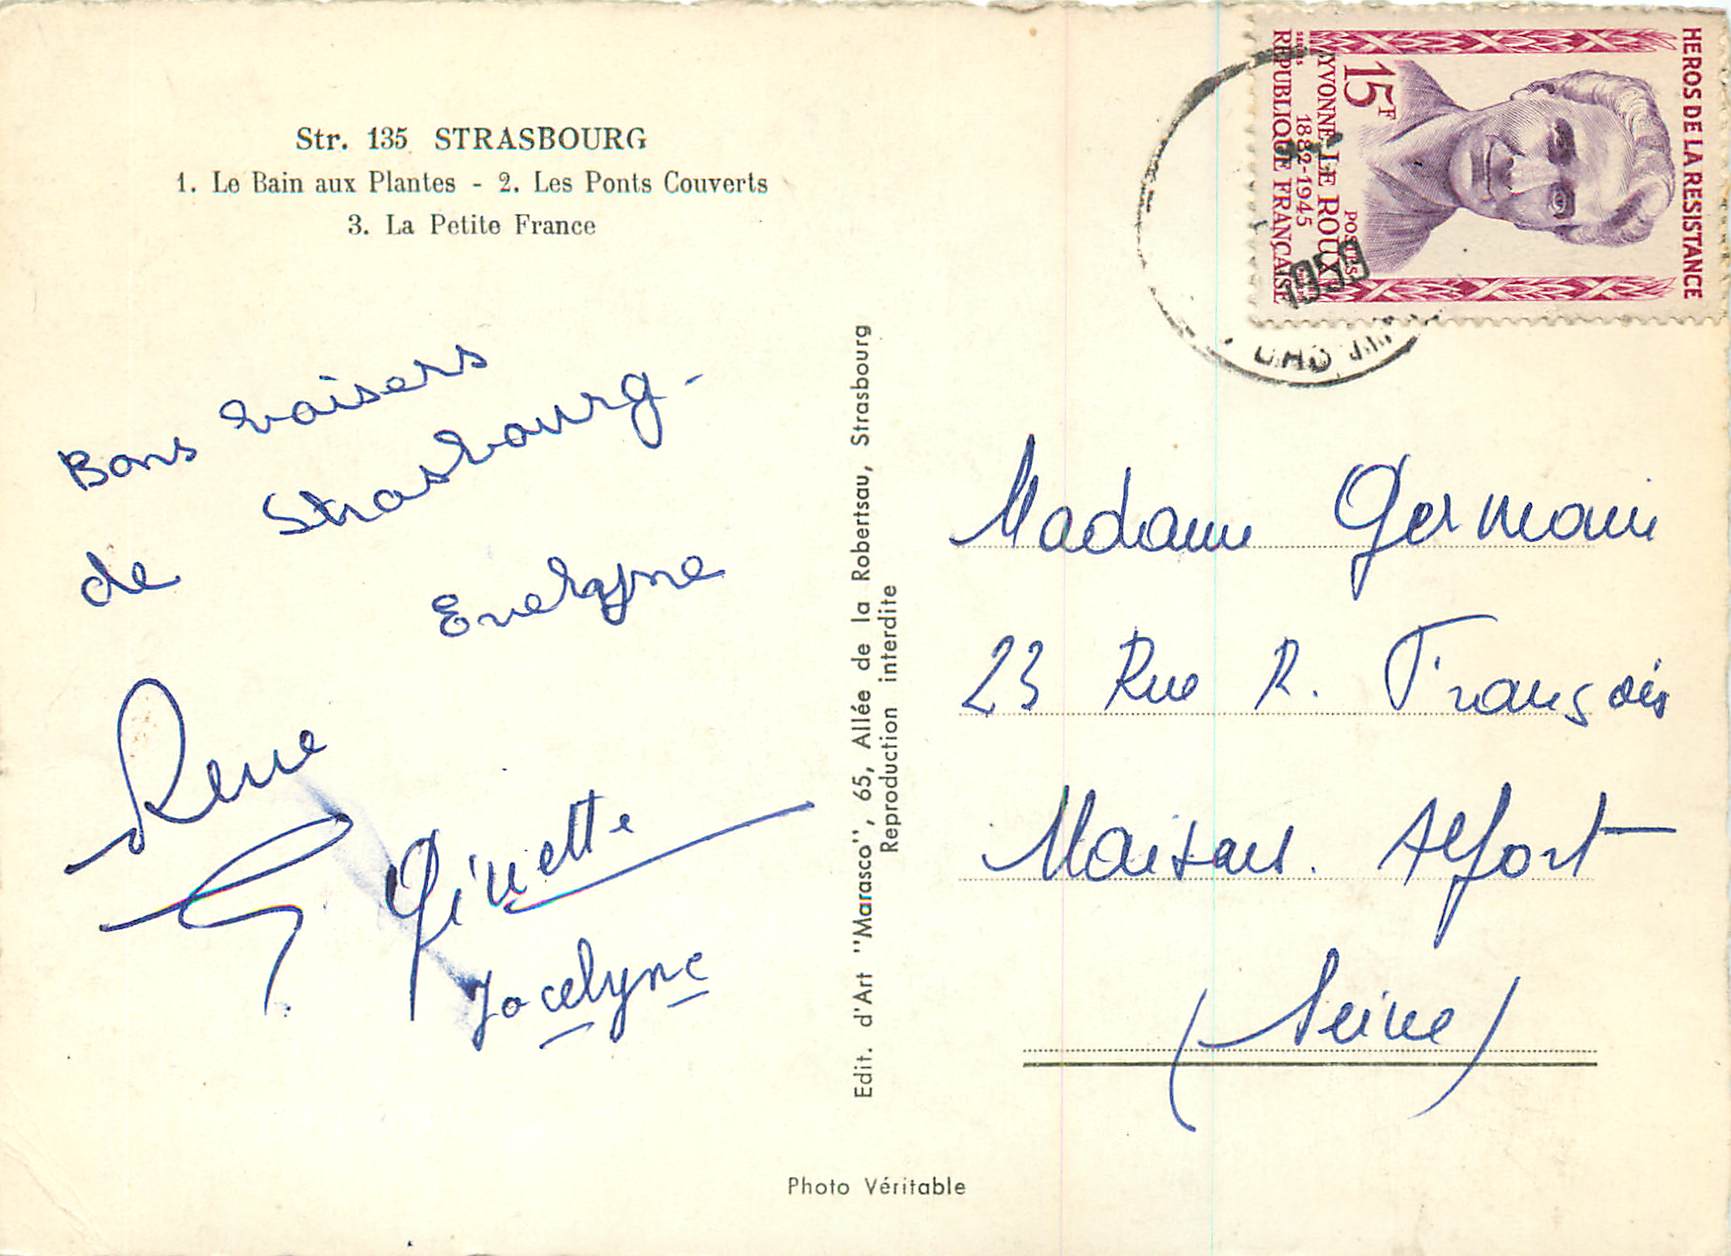 Str. 135 STRASBOURG
1. Le Bain aux Plantes - 2. Les Ponts Couverts
3. La Petite France
Bons baisers
de Strasbourg -
Evelyne
René
Ginette
Jocelyne
Edit. d'Art "Marasco", 65, Allée de la Robertsau, Strasbourg
Reproduction interdite
Photo Véritable
HEROS DE LA RESISTANCE
15F
POSTES
YVONNE LE ROUX
1882-1945
RÉPUBLIQUE FRANÇAISE
1959
Madame Germain
23 Rue R. François
Maisons. Alfort
(Seine)